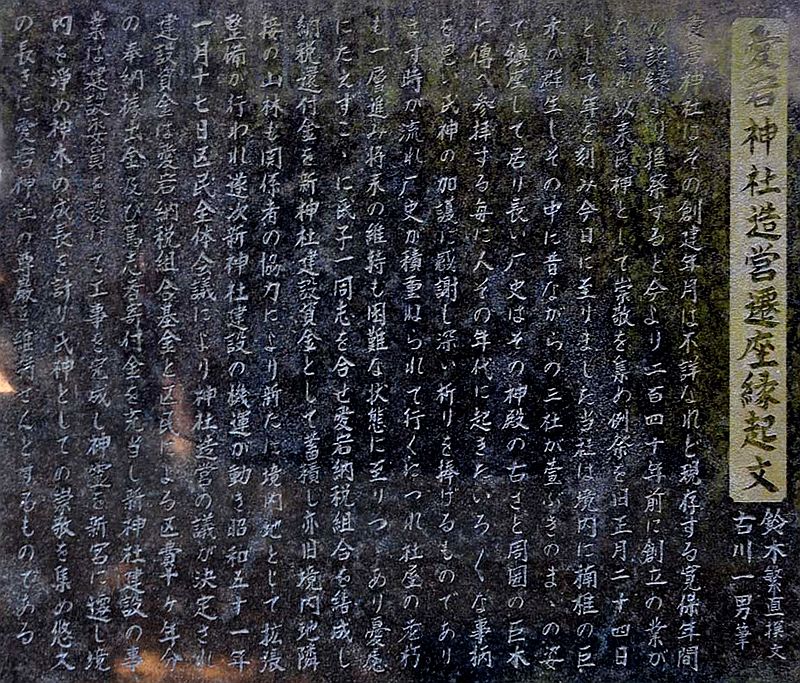 愛宕神社造営遷座縁起文
鈴木繁直撰文
古川一男筆
愛宕神社はその創建年月は不詳なれど現存する寛保年間
の記録より推察すると今より二百四十年前に創立の業が
なされ以来氏神として崇敬を集め例祭を旧正月二十四日
として年を刻み今日に至りました当社は境内に楠椎の巨
木が群生しその中に昔ながらの三社が萱ぶきのまゝの姿
で鎮座して居り長い厂史はその神殿の古さと周囲の巨木
に傳へ参拝する毎に人その年代に起きたいろ〱な事柄
を思い氏神の加護に感謝し深い祈りを捧げるものであり
ます時が流れ厂史が積重ねられて行くにつれ社屋の老朽
も一層進み将来の維持も困難な状態に至りつゝあり憂慮
にたえずこゝに氏子一同志を合せ愛宕納税組合を結成し
納税還付金を新神社建設資金として蓄積し亦旧境内地隣
接の山林も関係者の協力により新たに境内地として拡張
整備が行われ逐次新神社建設の機運が動き昭和五十一年
一月十七日区民全体会議により神社造営の議が決定され
建設資金は愛宕納税組合基金と区民による区費十ヶ年分
の奉納拠出金及び篤志者寄付金を充当し新神社建設の事
業は建設委員を設けて工事を完成し神霊を新宮に遷し境
内を浄め神木の成長を計り氏神としての崇敬を集め悠久
の長きに愛宕神社の尊厳を維持せんとするものである